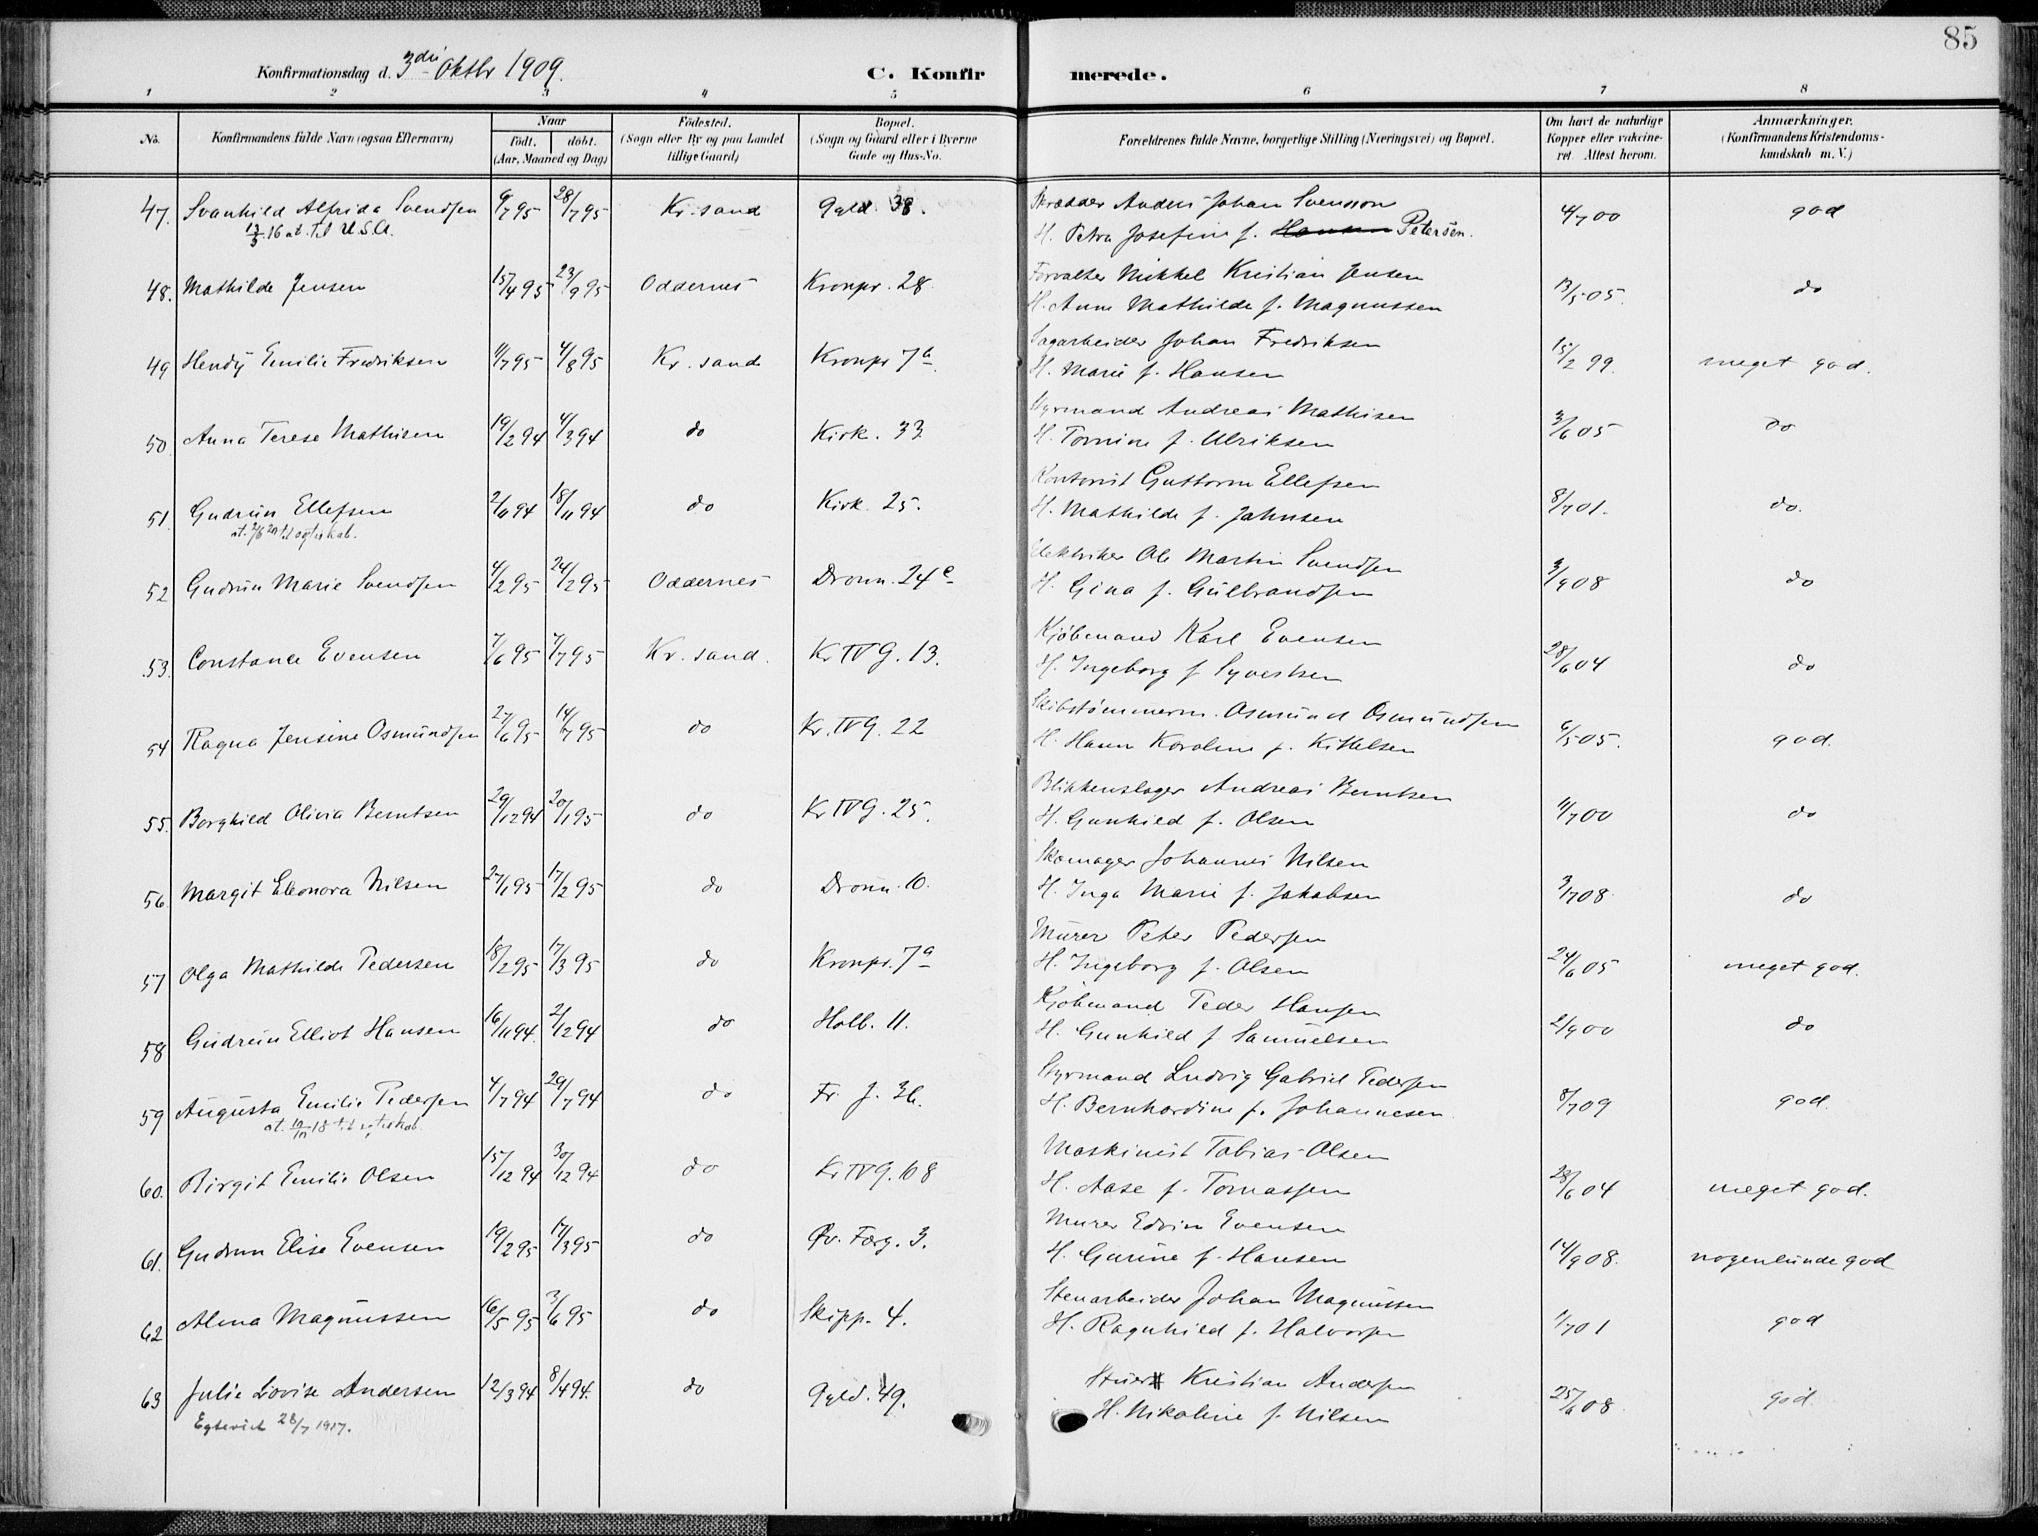 85
Konfirmationsdag d. 3die Oktbr 1909.
C. Konfirmerede.
1 2 3 4 5 6 7 8
No. Konfirmandens fulde Navn (ogsaa Efternavn) Naar født. døbt. (Aar, Maaned og Dag) Fødested. (Sogn eller By og paa Landet tillige Gaard) Bopæl. (Sogn og Gaard eller i Byerne Gade og Hus-No. Forældrenes fulde Navne, borgerlige Stilling (Næringsvei) og Bopæl. Om havt de naturlige Kopper eller vakcineret. Attest herom. Anmærkninger. (Konfirmandens Kristendomskundskab m. V.)
47. Svanhild Alfrida Svendsen 9/7 95 28/7 95 Kr.sand Gyld. 38. Skrædder Anders Johan Svensson 4/7 00 god
12/5 16 at. til U.S.A. H. Petra Josefine f. Hansen Petersen.
48. Mathilde Jensen 15/4 95 23/9 95 Oddernes Kronpr. 28. Forvalter Mikkel Kristian Jensen 13/5 05. do
H. Anne Mathilde f. Magnussen
49 Hendy Emilie Fredriksen 11/7 95 4/8 95 Kr.sand Kronpr 7a Sagarbeider Johan Fredriksen 15/2 99. meget god.
H. Marie f. Hansen
50 Anna Terese Mathisen 19/2 94 4/3 94 do Kirk. 33 Styrmand Andreas Mathisen 3/6 05 do
H. Tomine f. Ulriksen
51. Gudrun Ellefsen 2/11 94 18/11 94 do Kirk. 25. Kontorist Guttorm Ellefsen 8/7 01. do.
at. 2/6 20 til egteskab. H. Mathilde f. Jahnsen
52 Gudrun Marie Svendsen 4/2 95 24/2 95 Oddernes Dronn. 24c Elektriker Ole Martin Svendsen 3/9 08 do
H. Gina f. Gulbrandsen
53. Constance Evensen 7/6 95 7/7 95 Kr.sand. Kr IV G. 13. Kjøbmand Karl Evensen 28/6 04 do
H. Ingeborg f Syvertsen
54 Ragna Jensine Osmundsen 27/6 95 14/7 95 do Kr. IV G. 22 Skibstømmerm. Osmund Osmundsen 6/5 05. god.
H. Hanne Karoline f. Kittelsen
55. Borghild Olivia Berntsen 29/12 94 20/1 95 do Kr IV G. 25. Blikkenslager Andreas Berntsen 11/7 00 do
H. Gunhild f. Olsen
56. Margit Eleonora Nilsen 27/1 95 17/2 95 do Dronn. 10. Skomager Johannes Nilsen 3/7 08 do
H. Inga Marie f. Jakobsen
57 Olga Mathilde Pedersen 18/2 95 17/3 95 do Kronpr. 7a Murer Peter Pedersen 24/6 05 meget god.
H. Ingeborg f. Olsen
58 Gudrun Elliot Hansen 16/11 94. 2/12 94 do Holb. 11. Kjøbmand Peder Hansen 2/9 00 do
H. Gunhild f Samuelsen
59 Augusta Emilie Pedersen 4/7 94 29/7 94 do Fr. J. 36. Styrmand Ludvig Gabriel Pedersen 8/7 09 god.
at. 10/10 18 til egteskab. H. Bernhardine f. Johannesen.
60. Birgit Emilie Olsen 15/12 94 30/12 94 do Kr IV G. 108 Maskinist Tobias Olsen 28/6 04 meget god.
H. Aase f. Tomassen
61. Gudrun Elise Evensen 19/2 95 17/3 95 do Øv. Færg. 3. Murer Edvin Evensen 14/9 08. nogenlunde god
H. Gurine f. Hansen
62 Alma Magnussen 16/5 95 3/6 95 do Skipp. 4. Stenarbeider Johan Magnussen 1/7 01 god
H. Ragnhild f. Halvorsen
63 Julie Lovise Andersen 12/3 94 8/4 94. do Gyld. 49. Stuer Kristian Andersen 25/6 08. god.
Egteviet 28/7 1917. H. Nikoline f. Nilsen